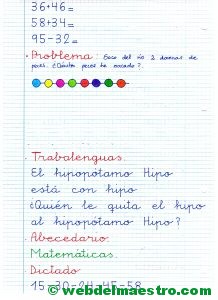 36+46=
58+34=
95-32=
. Problema: Saco del río 2 docenas de
peces. ¿Cuántos peces he sacado?
. Trabalenguas.
El hipopótamo Hipo
está con hipo
¿Quién le quita el hipo
al hipopótamo Hipo?
. Abecedario.
Matemáticas.
. Dictado
15-30-24-45-58
© webdelmaestro.com